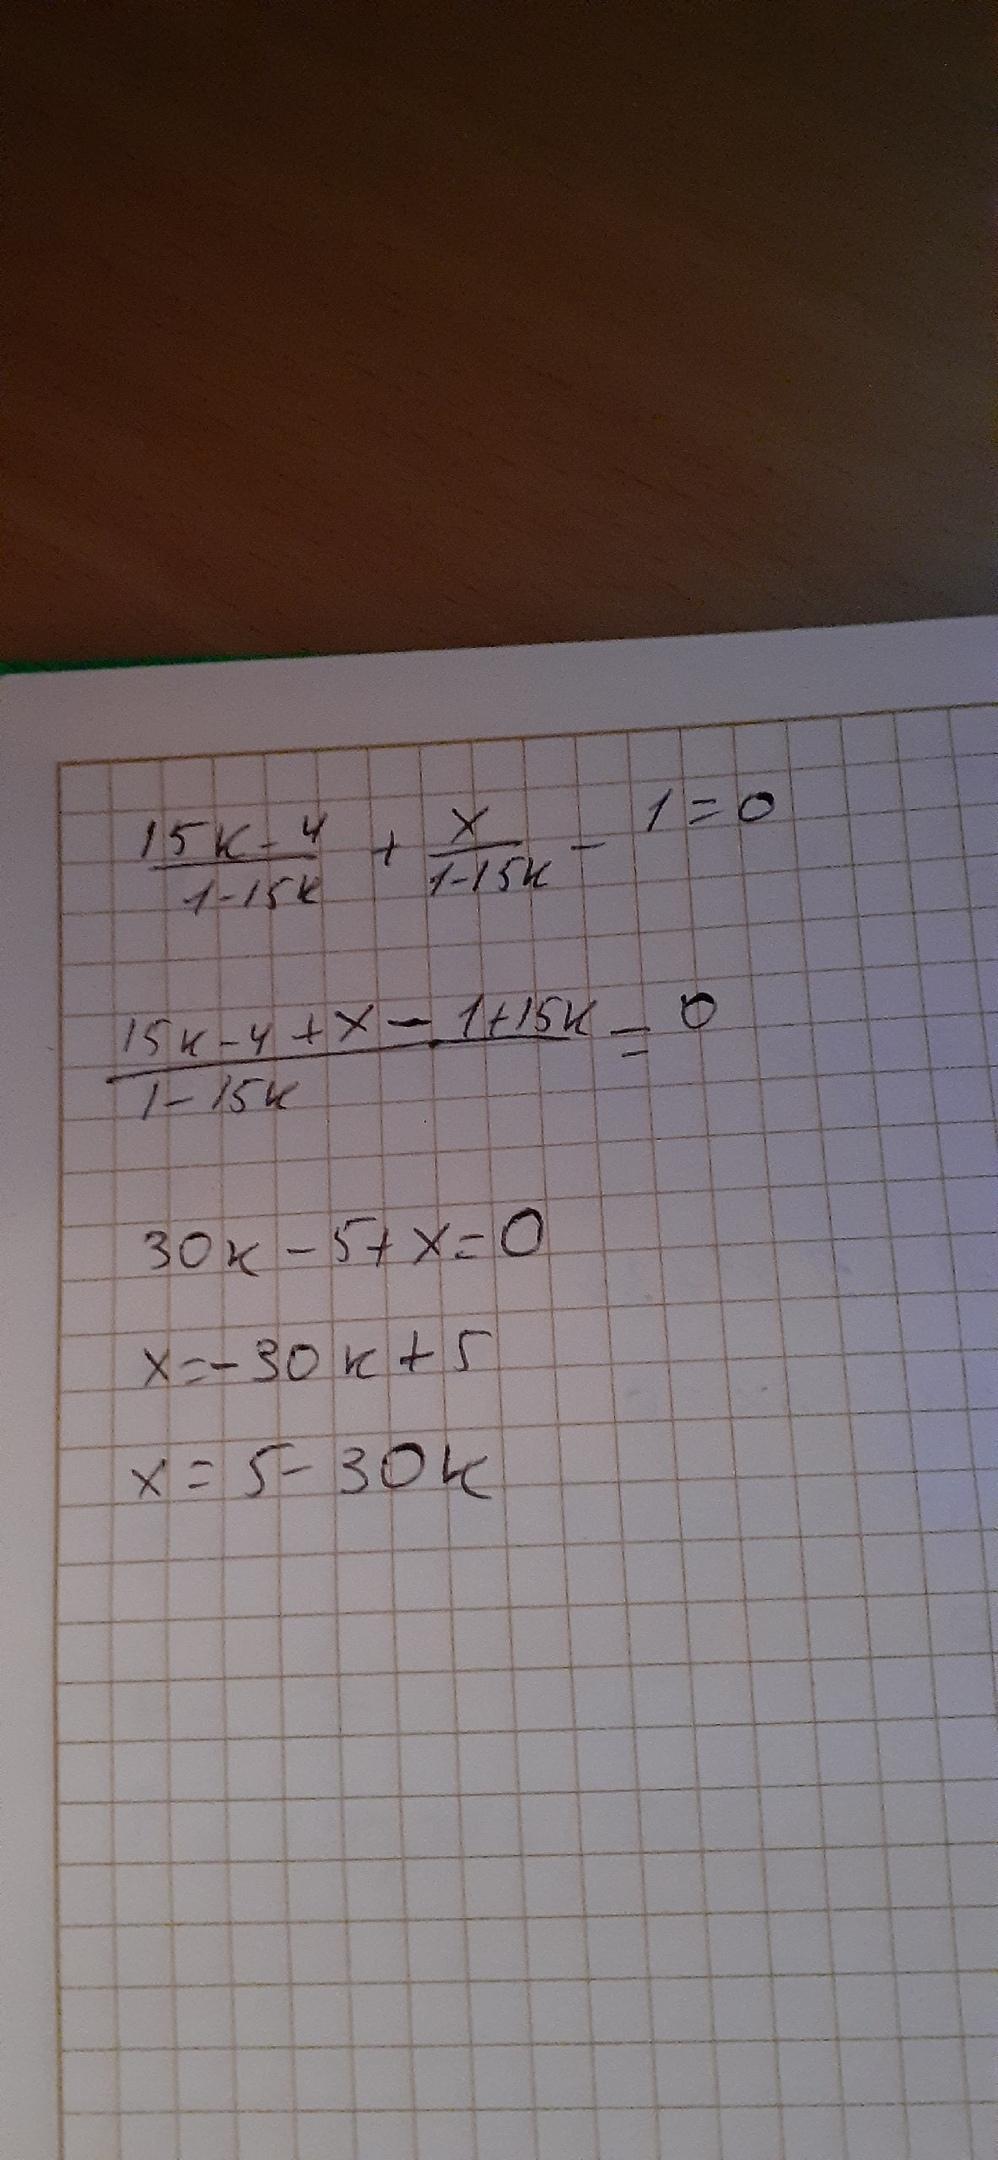 (15k-4)/(1-15k) + x/(1-15k) - 1 = 0
(15k-4+x-1+15k)/(1-15k) = 0
30k-5+x=0
x=-30k+5
x=5-30k